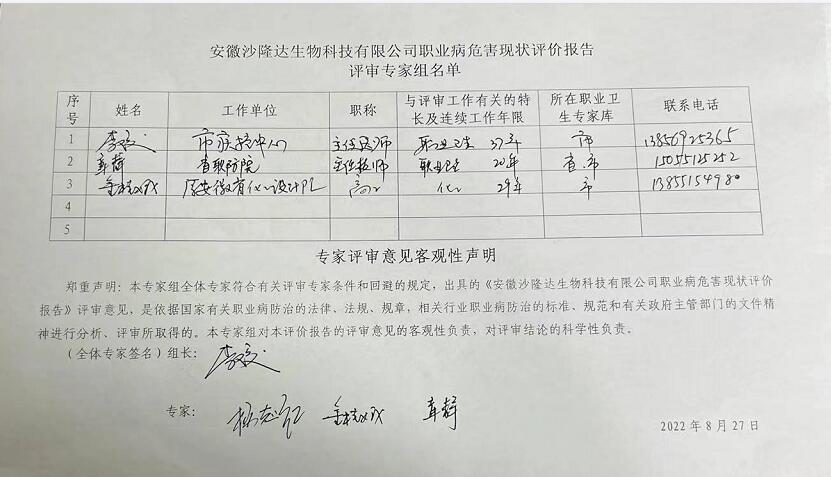 安徽沙隆达生物科技有限公司职业病危害现状评价报告
评审专家组名单
序号 姓名 工作单位 职称 与评审工作有关的特长及连续工作年限 所在职业卫生专家库 联系电话
1 市疾控中心 主任医师 职业卫生 37年 市 13856925365
2 省职防院 主任技师 职业卫生 20年 省.市 15055125252
3 高工 化工 29年 市 13855154980
4
5
专家评审意见客观性声明
郑重声明：本专家组全体专家符合有关评审专家条件和回避的规定，出具的《安徽沙隆达生物科技有限公司职业病危害现状评价
报告》评审意见，是依据国家有关职业病防治的法律、法规、规章，相关行业职业病防治的标准、规范和有关政府主管部门的文件精
神进行分析、评审所取得的。本专家组对本评价报告的评审意见的客观性负责，对评审结论的科学性负责。
（全体专家签名）组长：
专家：
2022年8月27日